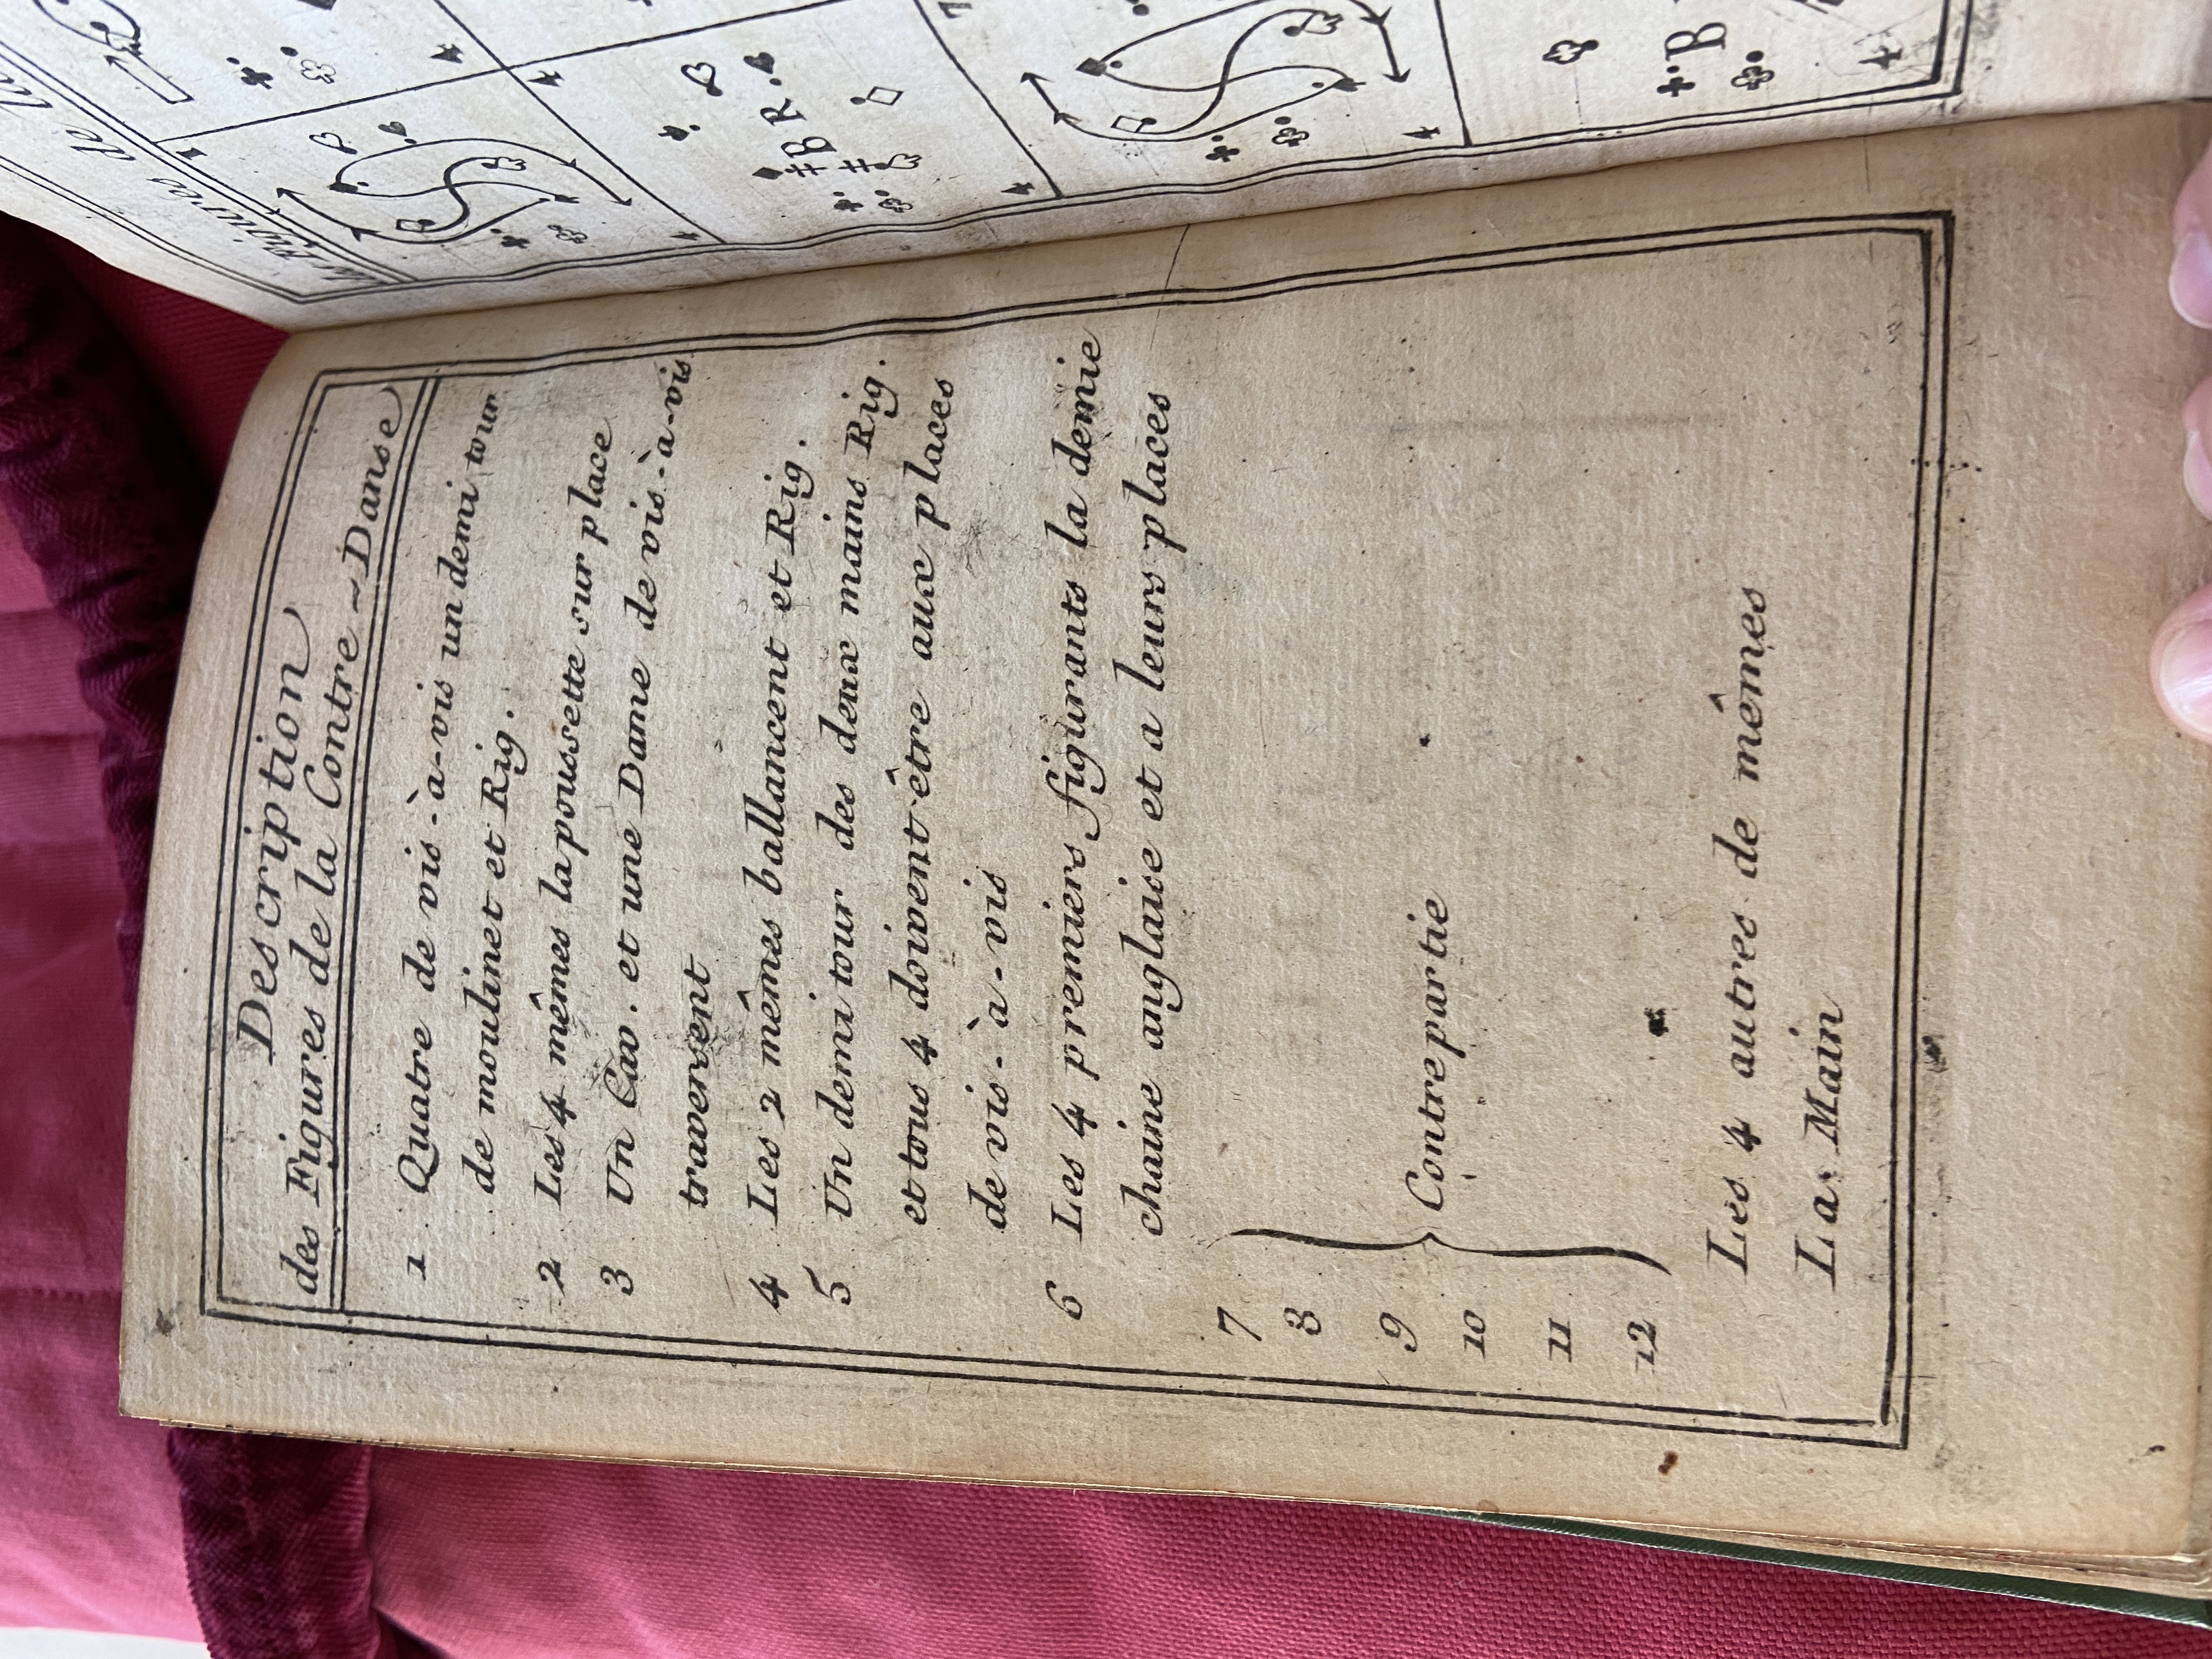 Description
des Figures de la Contre~Danse
1 Quatre de vis-à-vis un demi tour
de moulinet et Rig.
2 Les 4 mêmes la poussette sur place
3 Un Cav. et une Dame de vis-à-vis
traversent
4 Les 2 mêmes ballancent et Rig.
5 Un demi tour des deux mains Rig.
et tous 4 doivent être aux places
de vis-à-vis
6 Les 4 premiers figurants la demie
chaine anglaise et a leurs places
7
8
9 Contrepartie
10
11
12
Les 4 autres de mêmes
La Main
Figures de la
B R
7
B